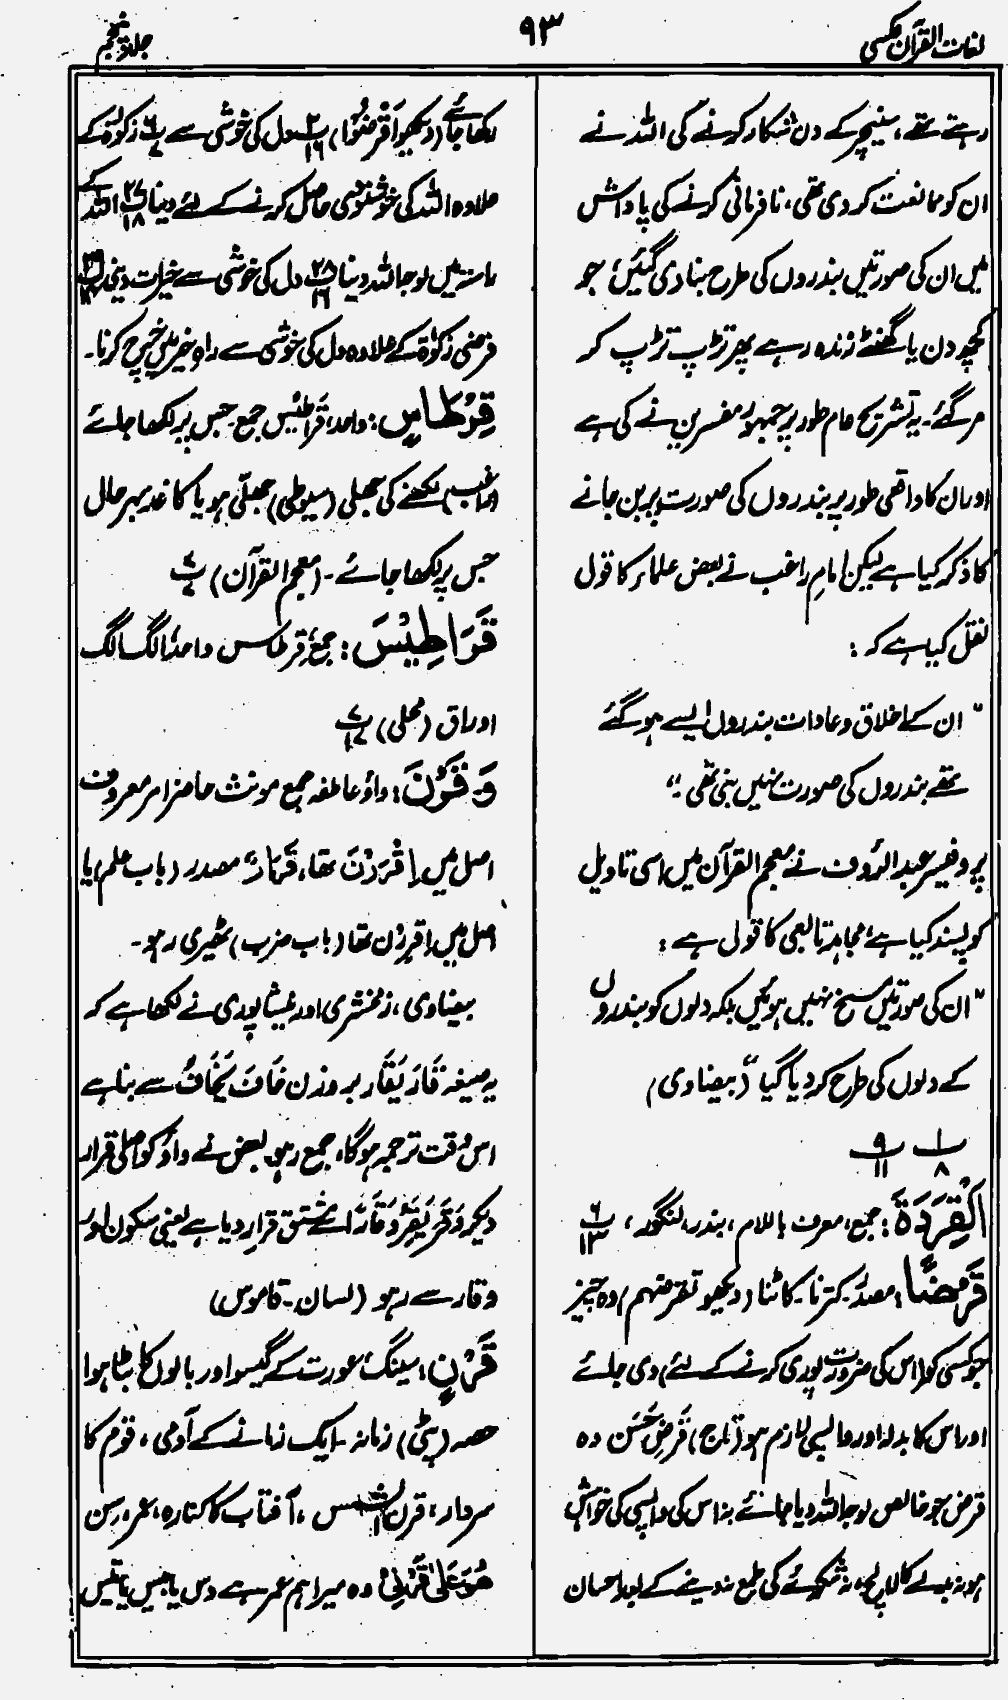 لغات القرآن عکسی
۹۳
جلد پنجم
رہتے تھے، سنیچر کے دن شکار کرنے کی اللہ نے
ان کو ممانعت کر دی تھی، نافرمانی کرنے کی پاداش
میں ان کی صورتیں بندروں کی طرح بنا دی گئیں، جو
کچھ دن یا گھنٹے زندہ رہے پھر تڑپ تڑپ کر
مر گئے۔ یہ تشریح عام طور پر جمہور مفسرین نے کی ہے
اور ان کا واقعی طور پر بندروں کی صورت پر بن جانے
کا ذکر کیا ہے لیکن امام راغب نے بعض علماء کا قول
نقل کیا ہے کہ:
"ان کے اخلاق و عادات بندروں ایسے ہو گئے
تھے بندروں کی صورت نہیں بنی تھی۔"
پروفیسر عبدالرؤف نے معجم القرآن میں اسی تاویل
کو پسند کیا ہے، مجاہد تابعی کا قول ہے:
"ان کی صورتیں مسخ نہیں ہوئیں بلکہ دلوں کو بندروں
کے دلوں کی طرح کر دیا گیا" (بیضاوی)
پ۱ ۸ پ۹ ۱۱
اَلْقِرَدَةَ: جمع، معرف باللام، بندر، لنگور، پ۶ ۱۳
قَرْضًا: مصدر۔ کترنا۔ کاٹنا (دیکھو تقرضهم) وہ چیز
جو کسی کو (اس کی ضرورت پوری کرنے کے لئے) دی جائے
اور اس کا بدلہ اور واپسی لازم ہو (تاج) قَرْضِ حَسَن وہ
قرض جو خالص لوجہ اللہ دیا جائے نہ اس کی واپسی کی خواہش
ہو نہ بدلے کا لالچ ہو، نہ شکریے کی طمع نہ دینے کے بعد احسان
رکھا جائے (دیکھو اَقْرِضُوا) پ۲ ۱۶ دل کی خوشی سے پ۶ ۷ زکوٰۃ کے
علاوہ اللہ کی خوشنودی حاصل کرنے کے لئے دینا پ۲۷ ۱۸ اللہ کے
راستہ میں لوجہ اللہ دینا پ۲۸ ۱۶ دل کی خوشی سے خیرات دینی پ۲۹
فرضی زکوٰۃ کے علاوہ دل کی خوشی سے راہِ خیر میں خرچ کرنا۔
قِرْطَاسٍ: واحد، قَرَاطِیْس جمع۔ جس پر لکھا جائے
(راغب) لکھنے کی جھلی (سیوطی) جھلّی ہو یا کاغذ بہرحال
جس پر لکھا جائے۔ (معجم القرآن) پ۷ ۷
قَرَاطِیْسَ: جمع، قرطاس واحد، الگ الگ
اوراق (محلی) پ۷ ۱۷
وَقَرْنَ: واؤ عاطفہ جمع مونث حاضر امر معروف
اصل میں اِقْرَرْنَ تھا، قَرَارٌ مصدر (باب علم) یا
اصل میں اِقْرِرْنَ تھا (باب ضرب) ٹھیری رہو۔
بیضاوی، زمخشری اور نیشاپوری نے لکھا ہے کہ
یہ صیغہ قَارَ یَقَار بر وزن خَافَ یَخَافُ سے بنا ہے
اس وقت ترجمہ ہوگا، جمع رہو۔ بعض نے واؤ کو اصلی قرار
دیکر وَقَرَ یَقِرُ وَقَارًا سے مشتق قرار دیا ہے یعنی سکون اور
وقار سے رہو (لسان۔ قاموس)
قَرْنٍ: سینگ، عورت کے گیسو اور بالوں کا بٹا ہوا
حصہ (پٹی) زمانہ۔ ایک زمانے کے آدمی، قوم کا
سردار، قرن الشمس، آفتاب کا کنارہ، عمر، سن
هُوَ عَلٰی قَرْنِیْ وہ میرا ہم عمر ہے دس یا بیس یا تیس